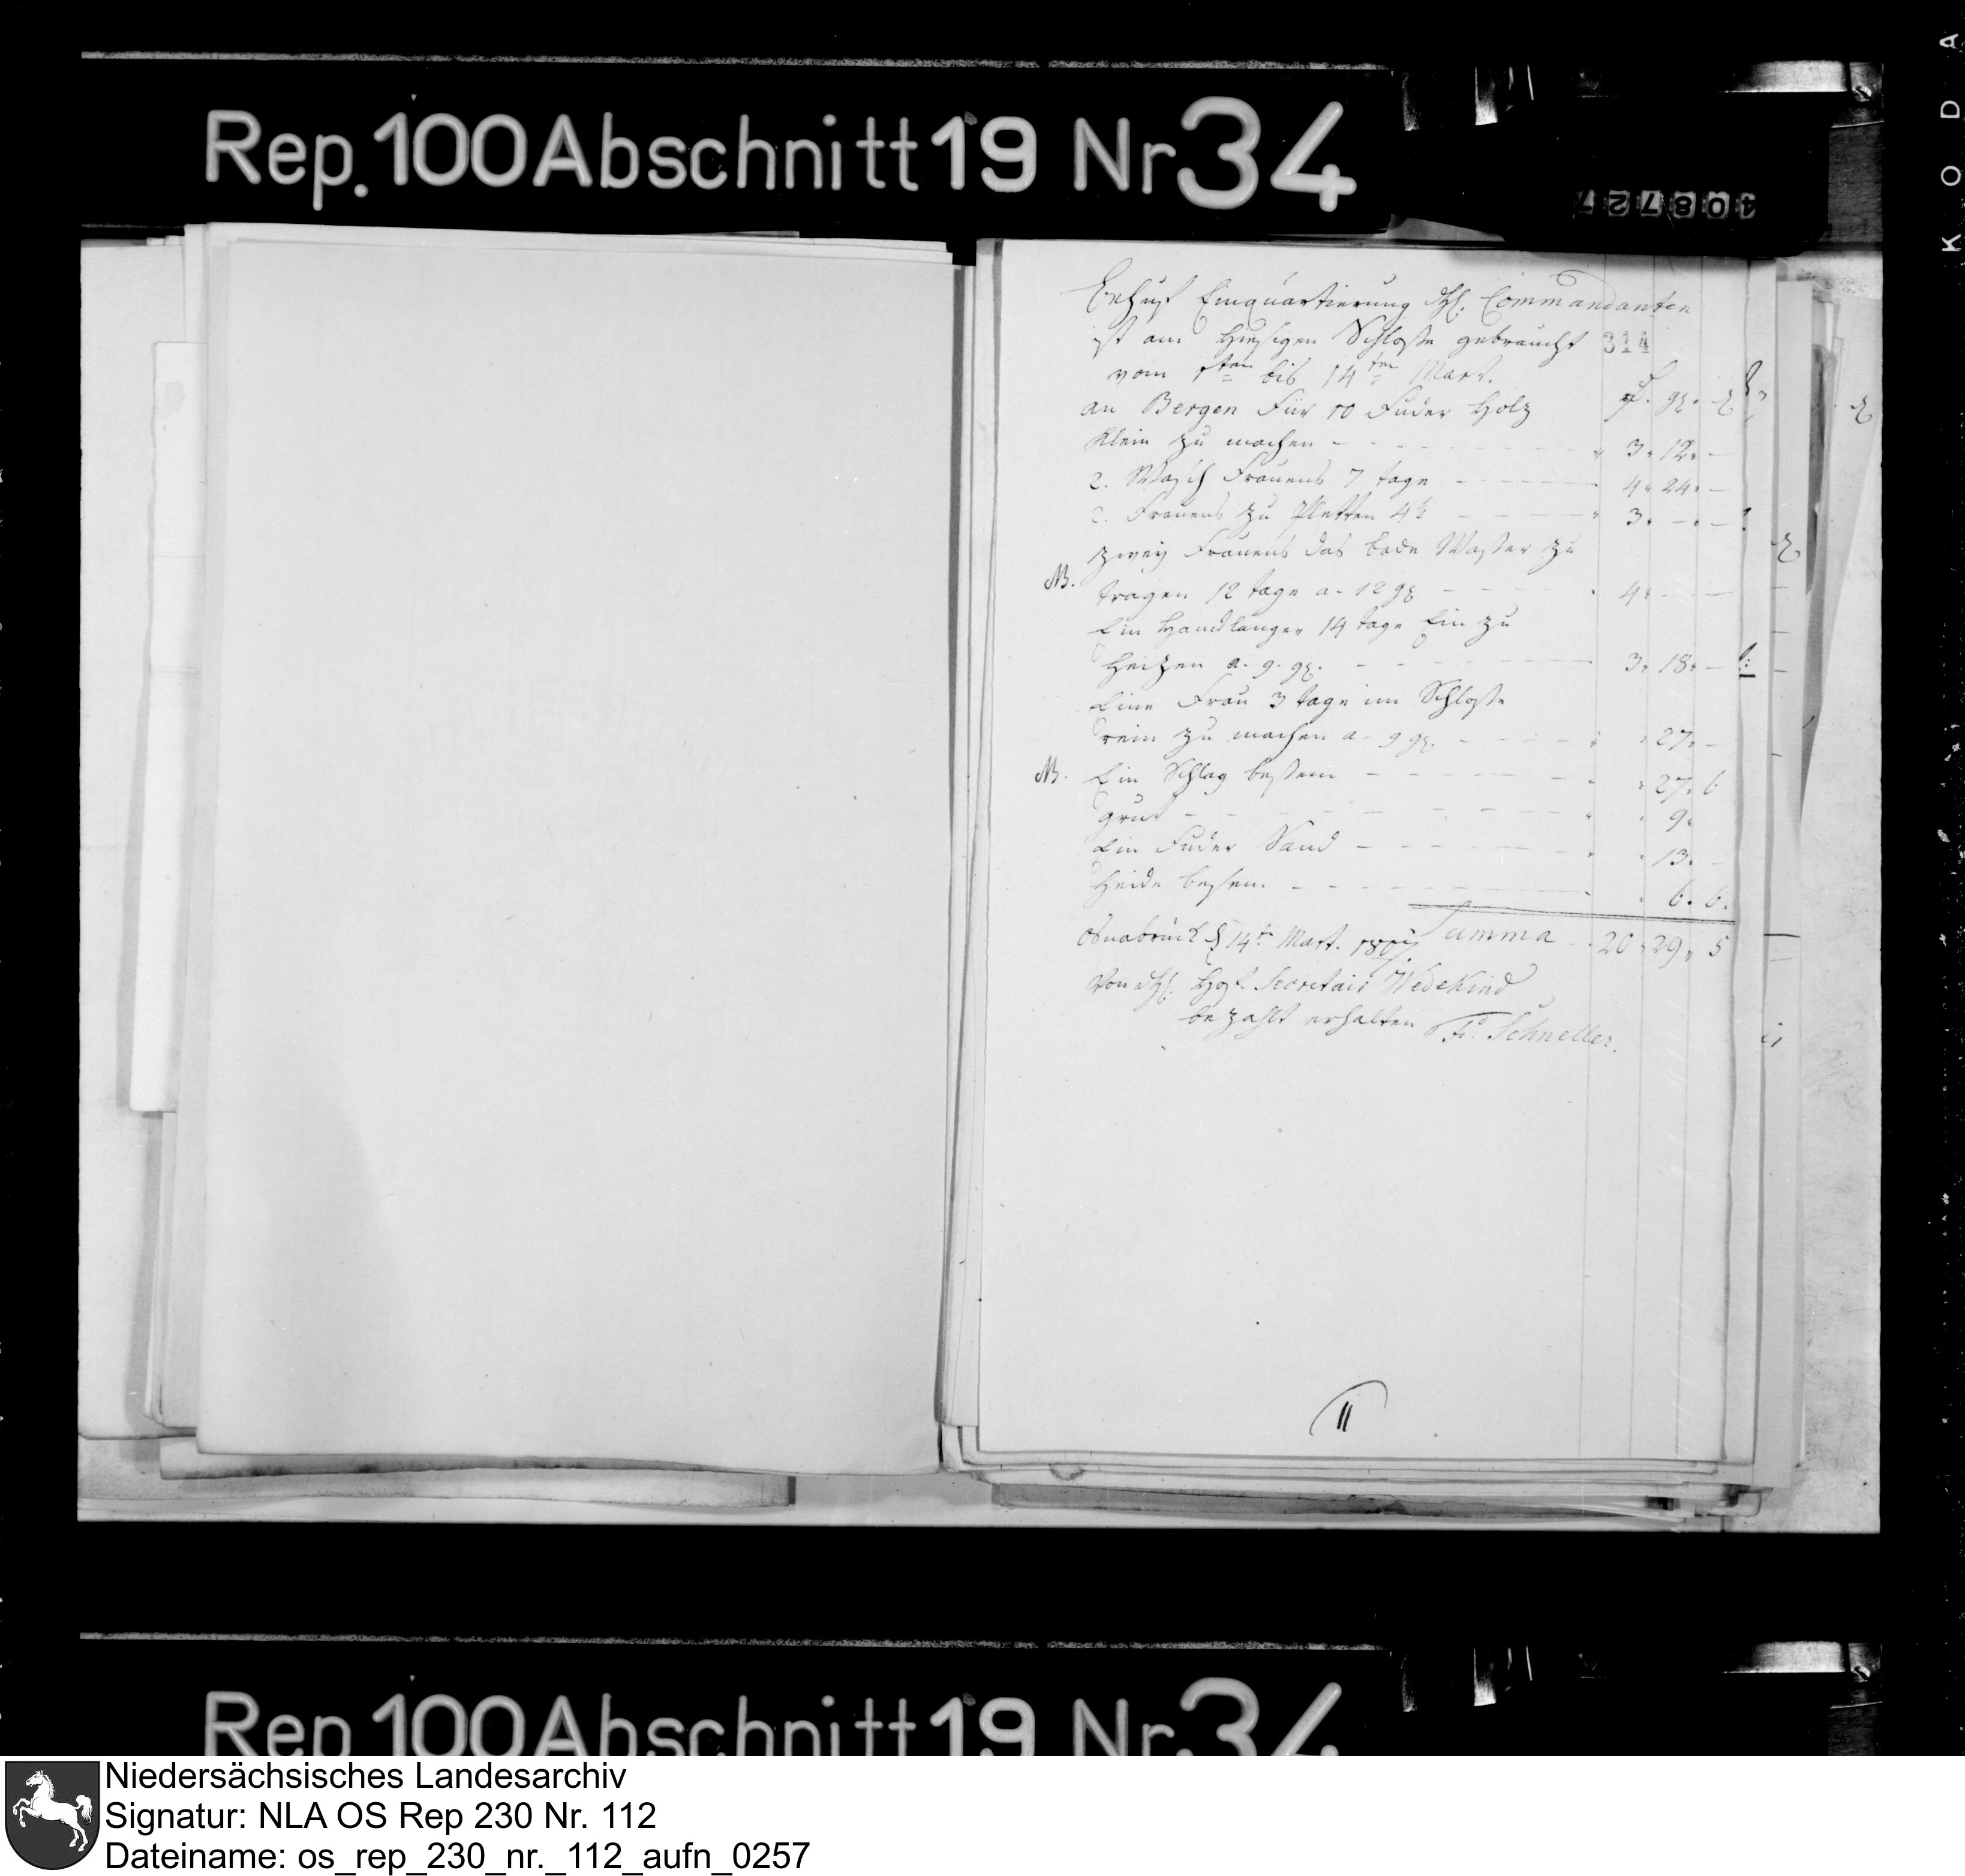 Rep. 100 Abschnitt 19 Nr 34
408727
KODA
Behuf Einquartierung Hl. Commandanten
ist am hiesigen Schlosse gebraucht 314
vom 1ten bis 14ten Mart.
an Bergen Für 10 Fuder Holz
Klein zu machen - - - 3. 12. -
2. Wasch Frauens 7 tage - - - 4. 24. -
2. Frauens zu Pletten 4½ - - - 3. -. -
zwey Frauens das bade Wasser zu
NB. tragen 12 tage a. 12 gr - - - 4. - -
Ein Handlanger 14 tage Ein zu
heitzen a. 9. gr. - - - 3. 18. -
Eine Frau 3 tage im Schlosse
rein zu machen a. 9 gr. - - - 27. -
NB. Ein Schlag bessem - - - 27. 6
- - - 9.
Ein Fuder Sand - - - 13. -
Heide bessen. - - - 6. 6.
Osnabrück d 14t Mart. 1807. Summa 20. 29. 5
Von Hl. Hof Secretair Wedekind
bezahlt erhalten Schneller.
II
Rep 100 Abschnitt 19 Nr. 34
Niedersächsisches Landesarchiv
Signatur: NLA OS Rep 230 Nr. 112
Dateiname: os_rep_230_nr._112_aufn_0257